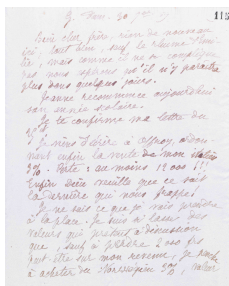 115
Mon cher père, rien de nouveau
ici, tout bien, sauf le rhume
, mais comme il ne se complique
pas nous espérons qu'il n'y paraîtra
plus dans quelques jours.
Jeanne recommence aujourd'hui
son année scolaire.
Je te confirme ma lettre du
Je viens d'écrire à
enfin la vente de mon italien
5%. Perte : au moins 12 000 !!!
Enfin Dieu veuille que ce soit
la dernière qui nous frappe.
Je ne sais ce que je vais prendre
à la place. Je suis à des
valeurs qui prêtent à discussion
que, sauf à perdre 2 000 frs
peut-être sur mon revenu, je
à acheter du 3%, valeur